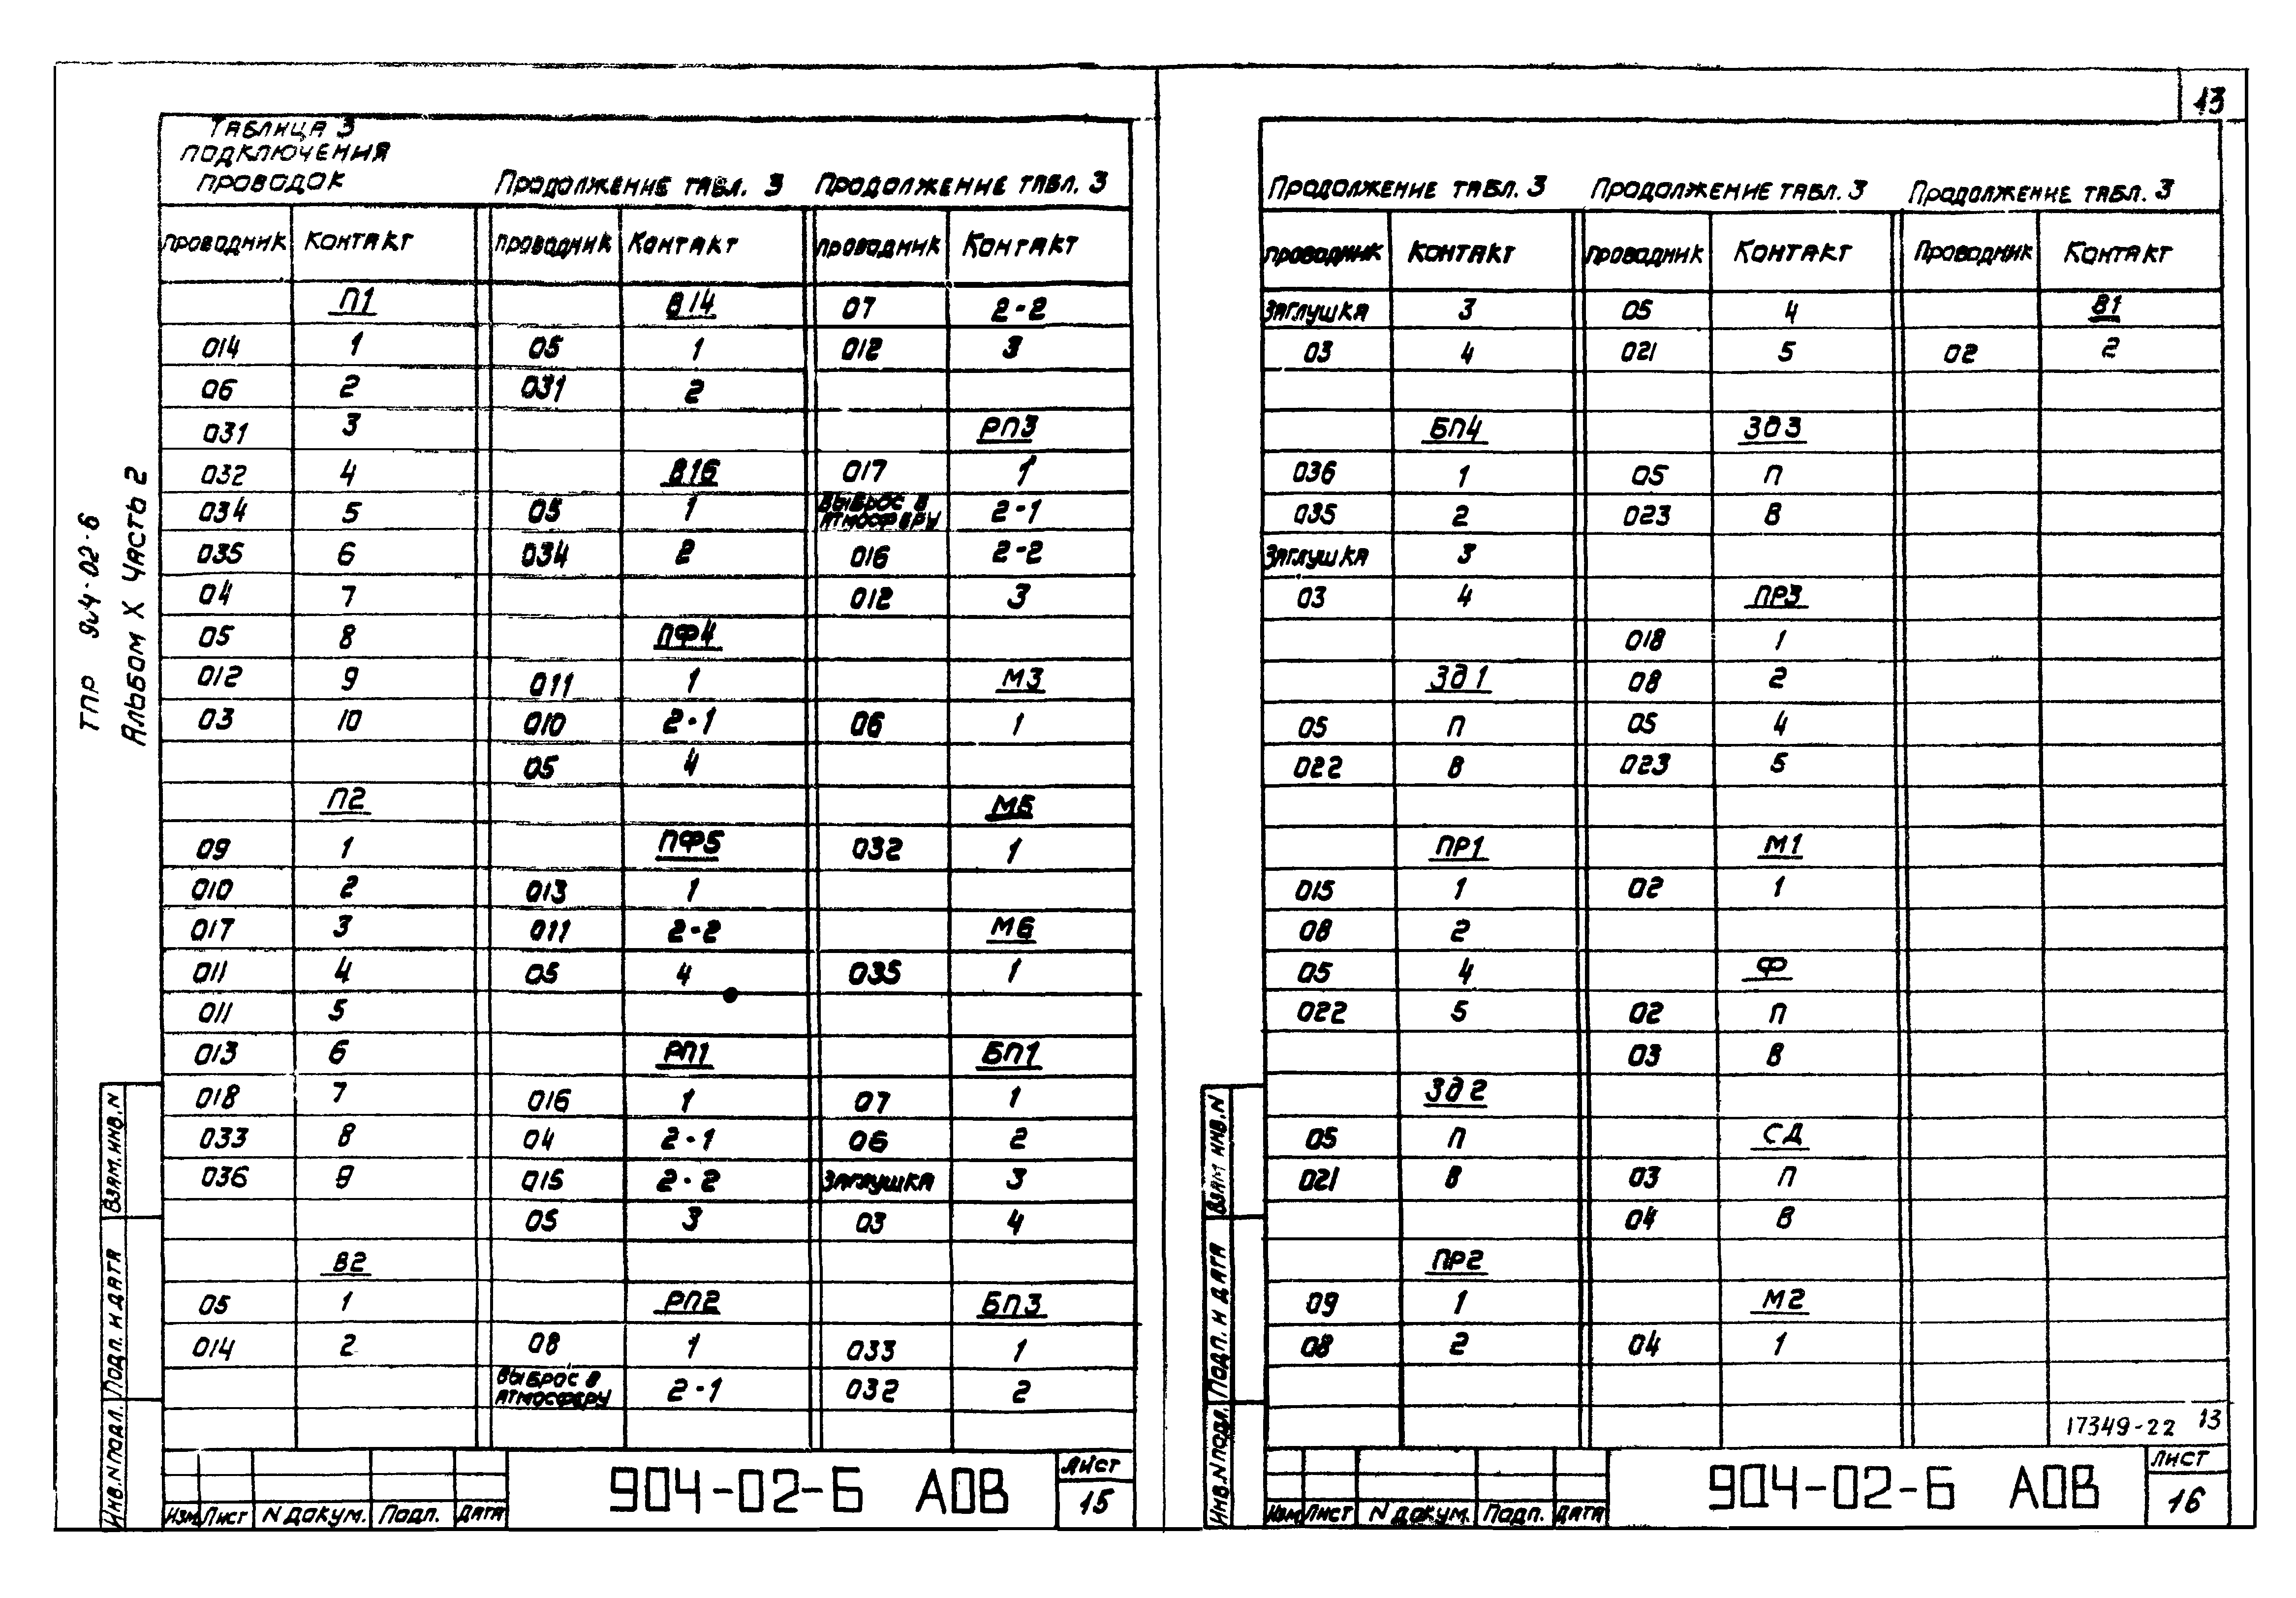 13
ТПР 904-02-6
Альбом X Часть 2
Таблица 3
подключения
проводок
Продолжение табл. 3
Продолжение табл. 3
проводник Контакт
П1
014 1
06 2
031 3
032 4
034 5
035 6
04 7
05 8
012 9
03 10
П2
09 1
010 2
017 3
011 4
011 5
013 6
018 7
033 8
036 9
В2
05 1
014 2
проводник Контакт
В14
05 1
031 2
В16
05 1
034 2
ПФ4
011 1
010 2-1
05 4
ПФ5
013 1
011 2-2
05 4
РП1
016 1
04 2-1
015 2-2
05 3
РП2
08 1
Выброс в
атмосферу 2-1
проводник Контакт
07 2-2
012 3
РП3
017 1
Выброс в
атмосферу 2-1
016 2-2
012 3
М3
06 1
М5
032 1
М6
035 1
БП1
07 1
06 2
Заглушка 3
03 4
БП3
033 1
032 2
Взам. инв. N
Подп. и дата
Инв. N подл.
Изм Лист N докум. Подп. Дата
904-02-6 АОВ
Лист
15
Продолжение табл. 3
Продолжение табл. 3
Продолжение табл. 3
проводник Контакт
Заглушка 3
03 4
БП4
036 1
035 2
Заглушка 3
03 4
ЗД1
05 П
022 В
ПР1
015 1
08 2
05 4
022 5
ЗД2
05 П
021 В
ПР2
09 1
08 2
проводник Контакт
05 4
021 5
ЗД3
05 П
023 В
ПР3
018 1
08 2
05 4
023 5
М1
02 1
Ф
02 П
03 В
СД
03 П
04 В
М2
04 1
Проводник Контакт
В1
02 2
17349-22 13
Взам инв. N
Подп. и дата
Инв. N подл.
Изм Лист N докум. Подп. Дата
904-02-6 АОВ
Лист
16